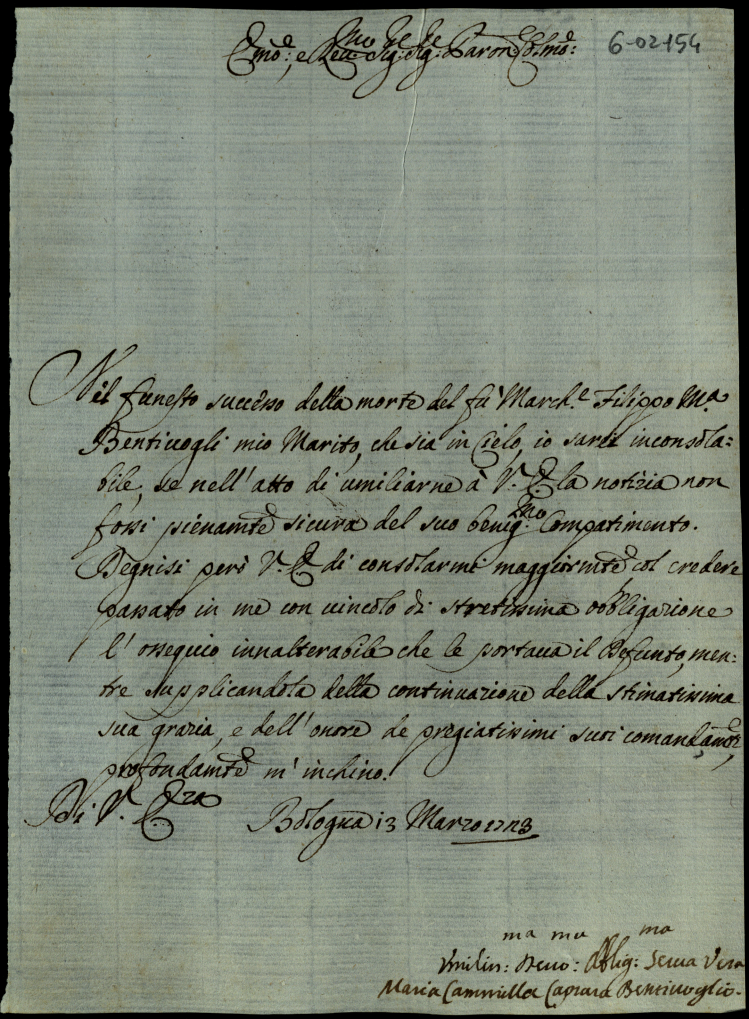 Emo:, e Reu:mo Sig:re Sig:re Paron Col:mo: 6-02-154
Nel funesto successo della morte del fù March.e Filippo M.a
Bentiuogli mio Marito, che sia in Cielo, io sarei inconsola=
bile, se nell' atto di umiliarne à V. E. la notizia non
fossi pienamte sicura del suo benig:mo Compatimento.
Degnisi però V. E. di consolarme maggiormte col credere
passato in me con uincolo di stretissima obbligazione
l' ossequio innalterabile che le portaua il Defunto, men=
tre supplicandola della continuazione della stimatissima
sua grazia, e dell' onore de pregiatissimi suoi comandamti,
profondamte m' inchino.
Di V. E.za Bologna 13 Marzo 1723
Vmilis:ma Deuo:ma Oblig:ma Serua Vera
Maria Cammilla Caprara Bentiuoglio.